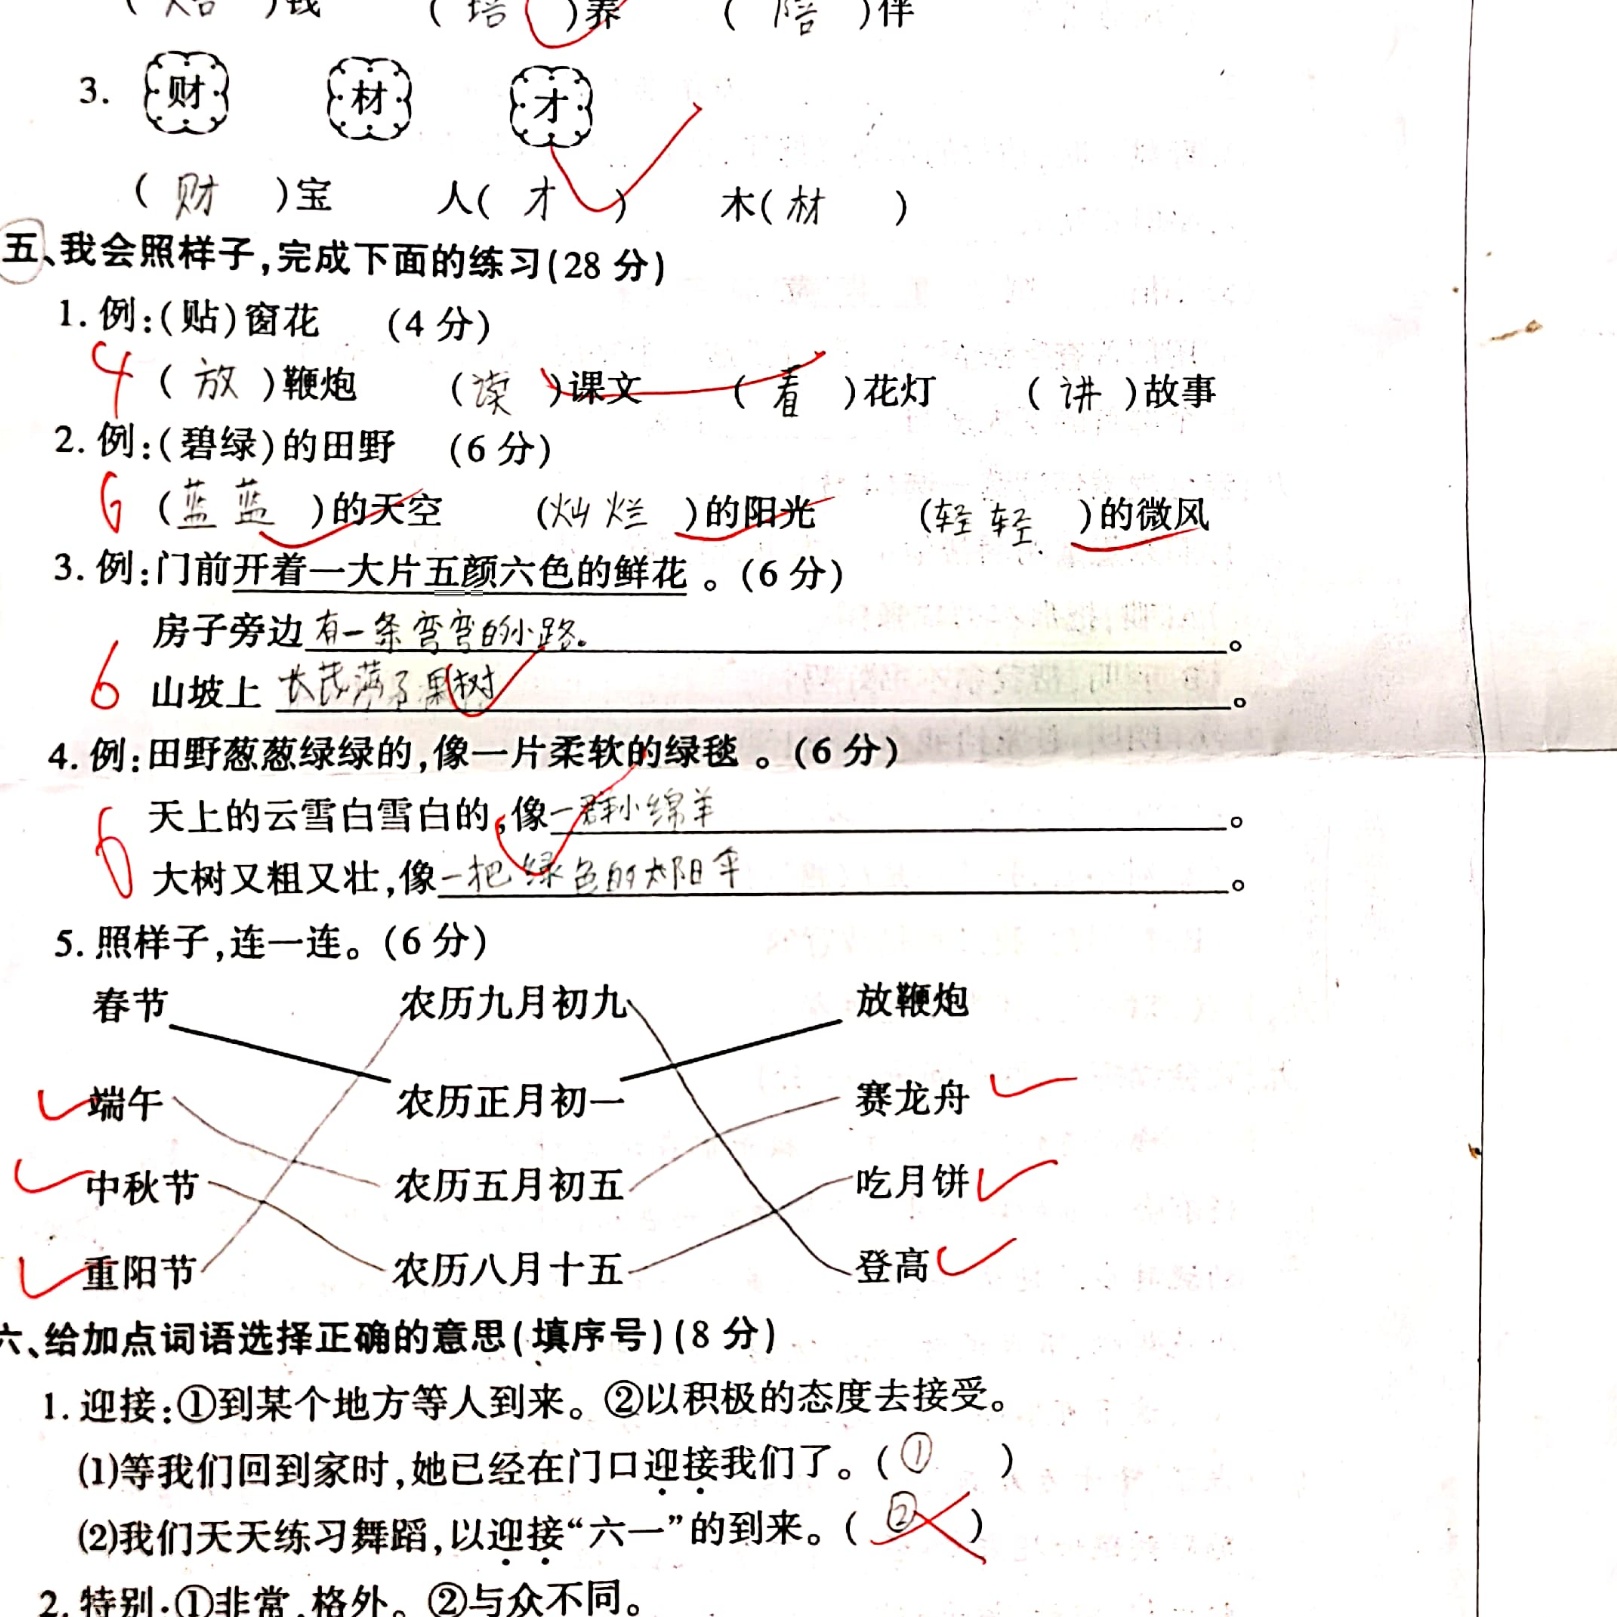 ()钱 (培)养 (陪)伴
3. 财 材 才
(财)宝 人(才) 木(材)
五、我会照样子,完成下面的练习(28分)
1. 例:(贴)窗花 (4分)
4 (放)鞭炮 (读)课文 (看)花灯 (讲)故事
2. 例:(碧绿)的田野 (6分)
6 (蓝蓝)的天空 (灿烂)的阳光 (轻轻)的微风
3. 例:门前开着一大片五颜六色的鲜花。(6分)
房子旁边有一条弯弯的小路。。
6 山坡上长满了果树。
4. 例:田野葱葱绿绿的,像一片柔软的绿毯。(6分)
天上的云雪白雪白的,像一群小绵羊。
6 大树又粗又壮,像一把绿色的太阳伞。
5. 照样子,连一连。(6分)
春节 农历九月初九 放鞭炮
端午 农历正月初一 赛龙舟
中秋节 农历五月初五 吃月饼
重阳节 农历八月十五 登高
六、给加点词语选择正确的意思(填序号)(8分)
1. 迎接:①到某个地方等人到来。②以积极的态度去接受。
(1)等我们回到家时,她已经在门口迎接我们了。(①)
(2)我们天天练习舞蹈,以迎接“六一”的到来。(②)
2. 特别:①非常,格外。②与众不同。